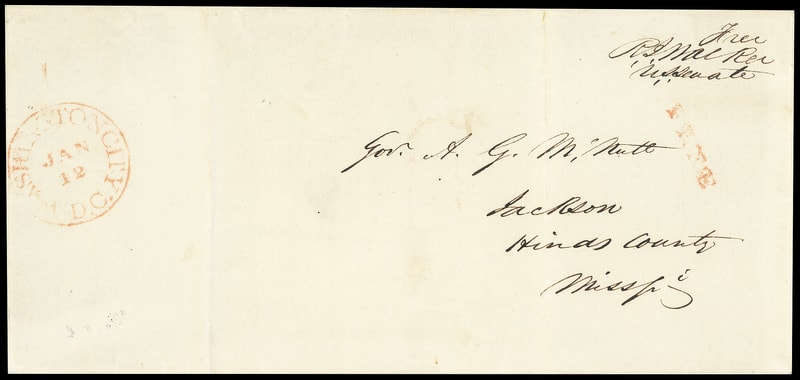 Free
R J Walker
U.S. Senate
FREE
WASHINGTON CITY. D.C.
JAN
12
Gov. A. G. McNutt
Jackson
Hinds County
Misspi